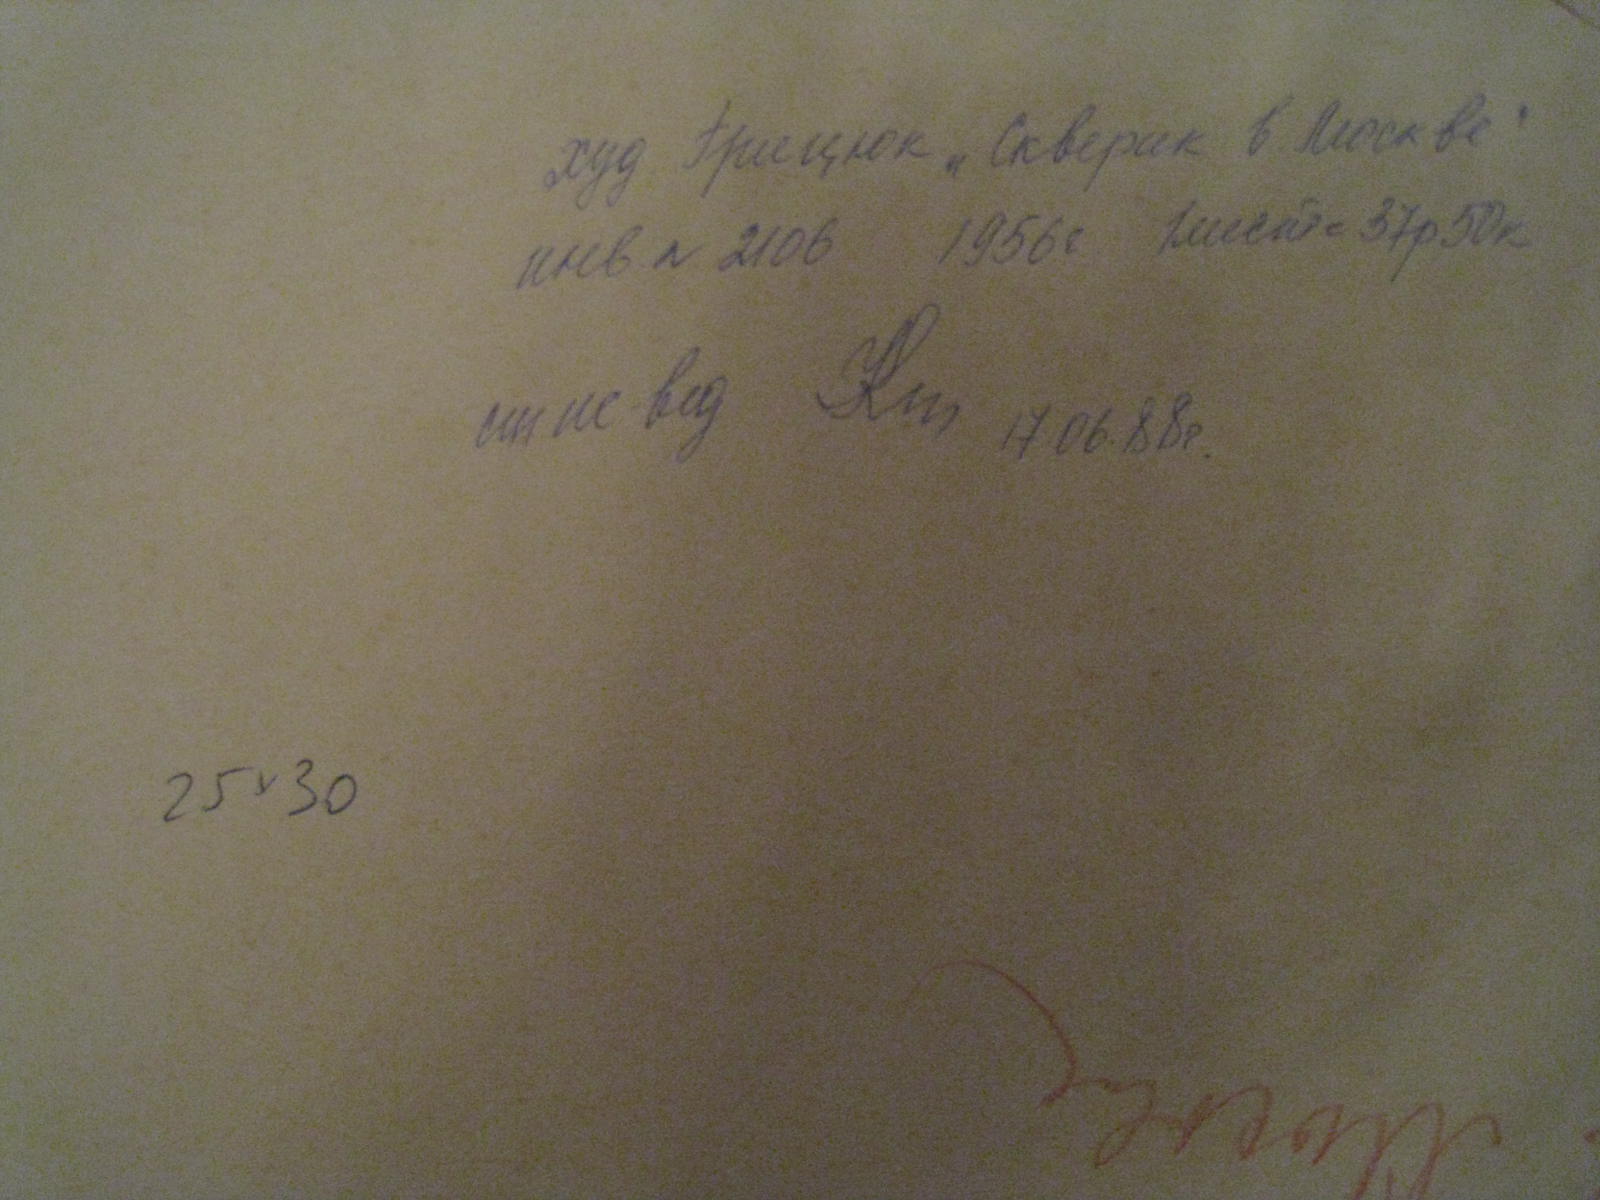 худ Грицюк „Скверик в Москве"
инв. № 2106 1956г 1лист = 37р50к
17 06.88г.
25х30